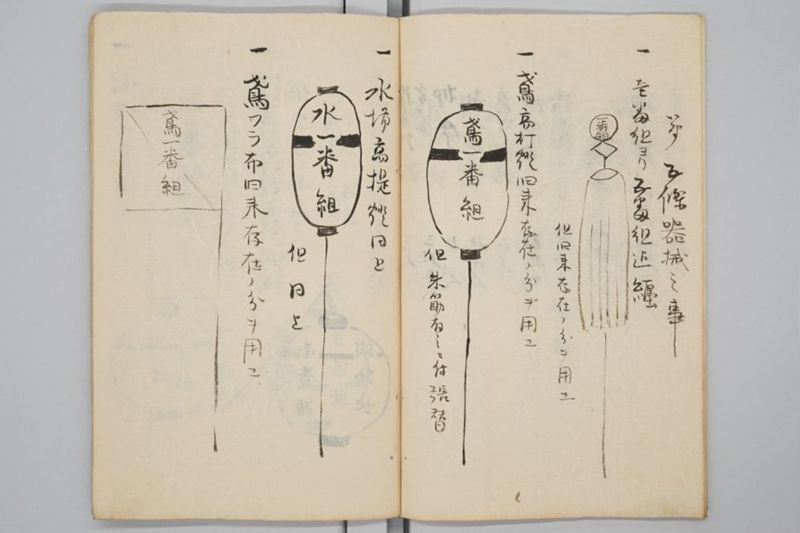 第五條器械之事
一 壱番組ヨリ五番組迄纏
一番組
但旧来存在ノ分ヲ用ユ
一 鳶高打燈旧来存在ノ分ヲ用ユ
鳶一番組
但朱筋有之ニ付張替
一 水場高提燈同上
水一番組
但同上
一 鳶フラ布旧来存在ノ分ヲ用ユ
鳶一番組